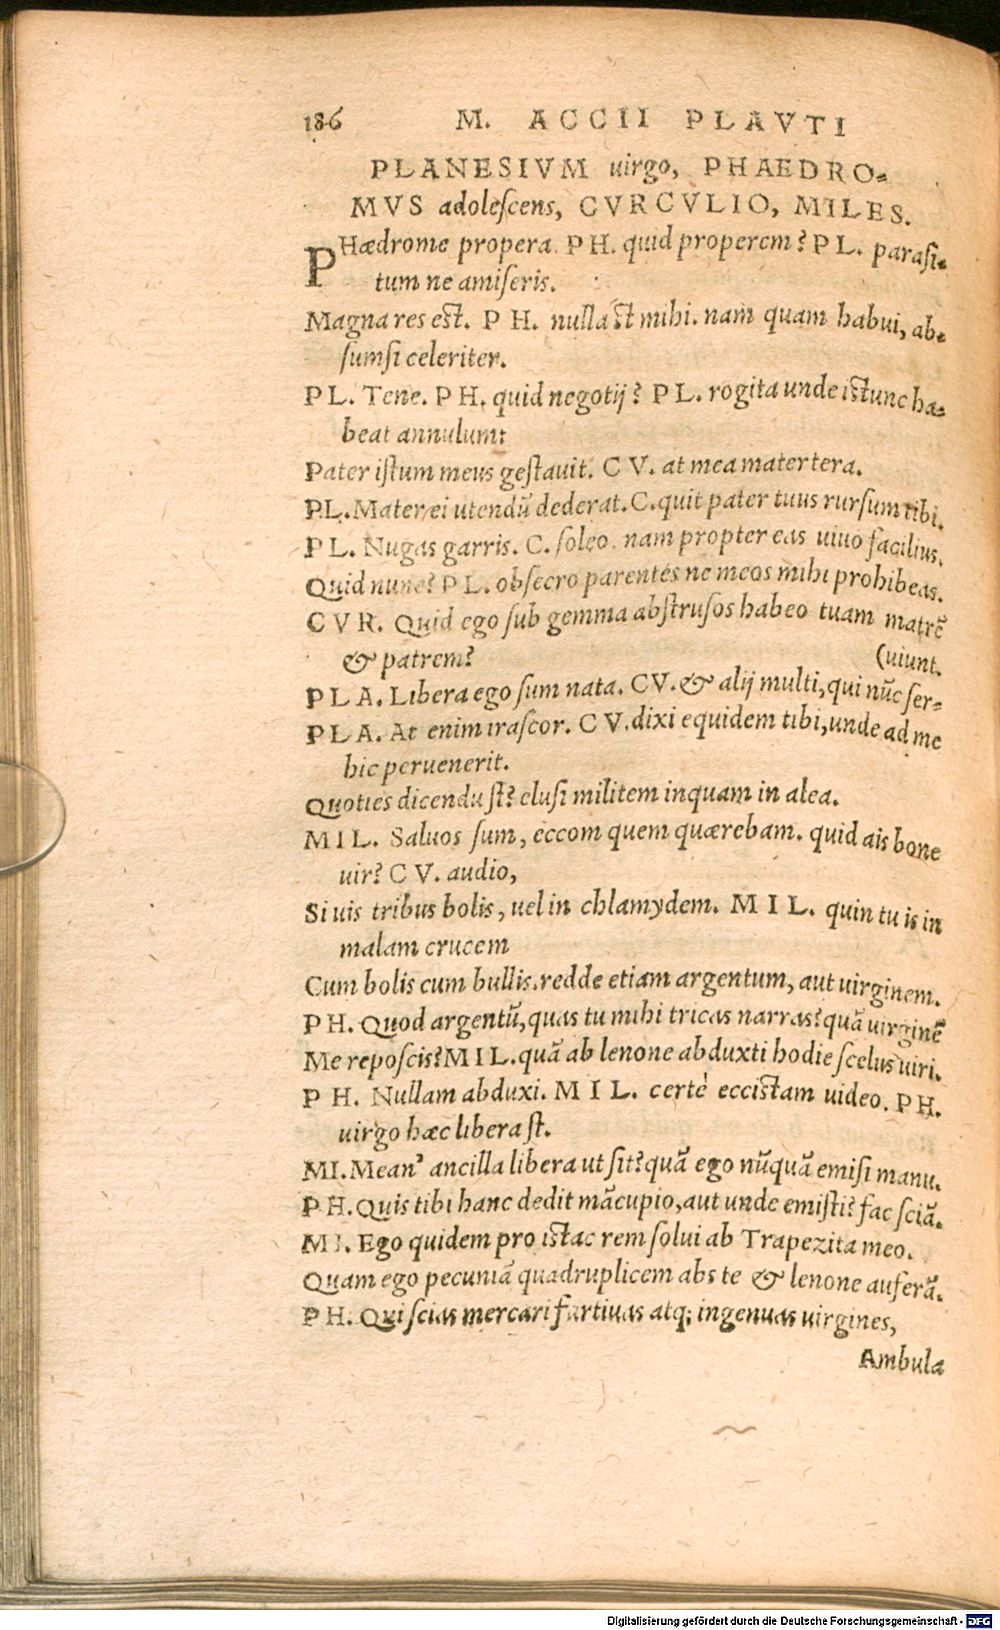 186 M. ACCII PLAVTI
PLANESIVM uirgo, PHAEDRO-
MVS adolescens, CVRCVLIO, MILES.
PHædrome propera. PH. quid properem? PL. parasi-
tum ne amiseris.
Magna res est. PH. nulla st mihi. nam quam habui, ab-
sumsi celeriter.
PL. Tene. PH. quid negotij? PL. rogita unde istunc ha-
beat annulum:
Pater istum meus gestauit. CV. at mea matertera.
PL. Mater ei utendū dederat. C. quit pater tuus rursum tibi.
PL. Nugas garris. C. soleo. nam propter eas uiuo facilius.
Quid nunc? PL. obsecro parentes ne meos mihi prohibeas.
CVR. Quid ego sub gemma abstrusos habeo tuam matrē
& patrem? (uiunt.
PLA. Libera ego sum nata. CV. & alij multi, qui nūc ser-
PLA. At enim irascor. CV. dixi equidem tibi, unde ad me
hic peruenerit.
Quoties dicendu st? elusi militem inquam in alea.
MIL. Saluos sum, eccom quem quærebam. quid ais bone
uir? CV. audio,
Si uis tribus bolis, uel in chlamydem. MIL. quin tu is in
malam crucem
Cum bolis cum bullis. redde etiam argentum, aut uirginem.
PH. Quod argentū, quas tu mihi tricas narras? quā uirginē
Me reposcis? MIL. quā ab lenone abduxti hodie scelus uiri.
PH. Nullam abduxi. MIL. certè eccistam uideo. PH.
uirgo hæc libera st.
MI. Mean' ancilla libera ut sit? quā ego nūquā emisi manu.
PH. Quis tibi hanc dedit mācupio, aut unde emisti? fac sciā.
MI. Ego quidem pro istac rem solui ab Trapezita meo.
Quam ego pecuniā quadruplicem abs te & lenone auferā.
PH. Qui scias mercari furtiuas atq; ingenuas uirgines,
Ambula
Digitalisierung gefördert durch die Deutsche Forschungsgemeinschaft - DFG